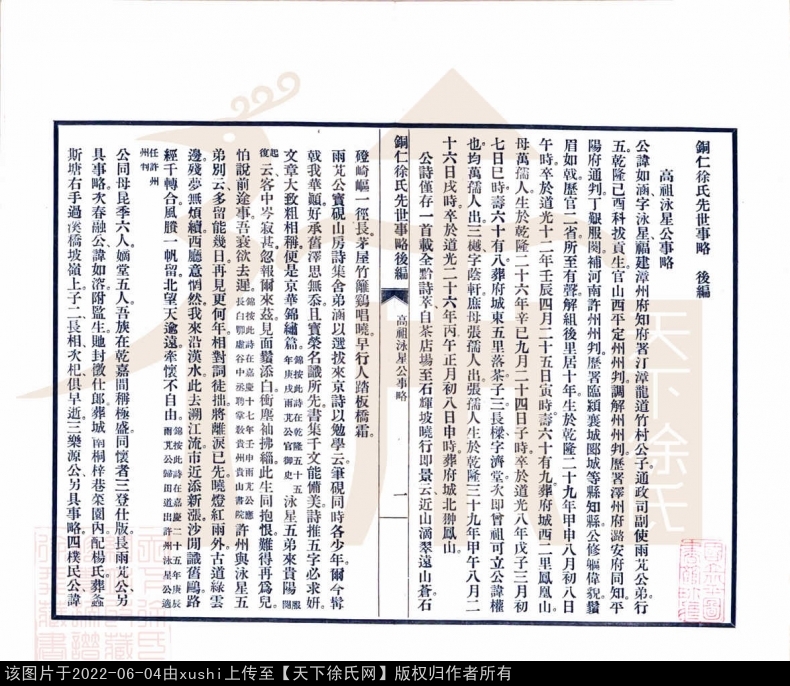 銅仁徐氏先世事略　後編
高祖泳星公事略
公諱如涵字泳星福建漳州府知府署汀漳龍道竹村公子通政司副使雨芃公弟行
五乾隆己酉科拔貢生官山西平定州州判調解州州判歷署澤州府潞安府同知平
陽府通判丁艱服闋補河南許州州判歷署臨潁襄城郾城等縣知縣公修軀偉貌鬚
眉如戟歷官二省所至有聲解組後里居十年生於乾隆二十九年甲申八月初八日
午時卒於道光十二年壬辰四月二十五日寅時壽六十有九葬府城西二里鳳凰山
母萬孺人生於乾隆二十六年辛巳九月二十四日子時卒於道光八年戊子三月初
七日巳時壽六十有八葬府城東五里落茶子三長樑字濟堂次即曾祖可立公諱權
也均萬孺人出三樾字蔭軒庶母張孺人出張孺人生於乾隆三十九年甲午八月二
十六日戌時卒於道光二十六年丙午正月初八日申時葬府城北翀鳳山
公詩僅存一首載全黔詩萃自茶店場至石輝坡曉行即景云近山滴翠遠山蒼石
銅仁徐氏先世事略後編
高祖泳星公事略
一
磴崎嶇一徑長茅屋竹籬鷄唱曉早行人踏板橋霜
雨芃公寶硯山房詩集舍弟涵以選拔來京詩以勉學云筆硯同時各少年爾今揖
戟我華顛好承舊澤思無忝且寶榮名識所先書集千文能備美詩推五字必求妍
文章大致粗相稱便是京華錦繡篇錦按此詩在乾隆五十五年庚戌雨芃公官御史泳星五弟來貴陽服闋
起復云客中岑寂甚忽報爾來茲見面鬚添白衝塵袖拂緇此生同抱恨難得再爲兒
怕說前途事吾衰欲去遲錦按此詩在嘉慶十七年壬申雨芃公應長白鄂虛谷中丞聘掌教貴州貴山書院許州與泳星五
弟別云多留能幾日再見更何年相對詞徒拙將離淚已先曉燈紅雨外古道綠雲
邊殘夢無煩續西廳意惘然我來沿漢水此去溯江流市近添新漲沙開識舊鷗路
經千轉合風賸一帆留北望天邊遠牽懷不自由錦按此詩在嘉慶二十五年庚辰雨芃公歸田道出許州泳星公適
任許州州判
公同母昆季六人嫡堂五人吾族在乾嘉間稱極盛同懷者三登仕版長雨芃公另
具事略次春融公諱如溶附監生貤封徵仕郎葬城南桐梓巷菜園內配楊氏葬螽
斯塘右手過溪橋坡嶺上子二長相次杞俱早逝三樂源公另具事略四樸民公諱
该图片于2022-06-04由xushi上传至【天下徐氏网】版权归作者所有
天下徐氏